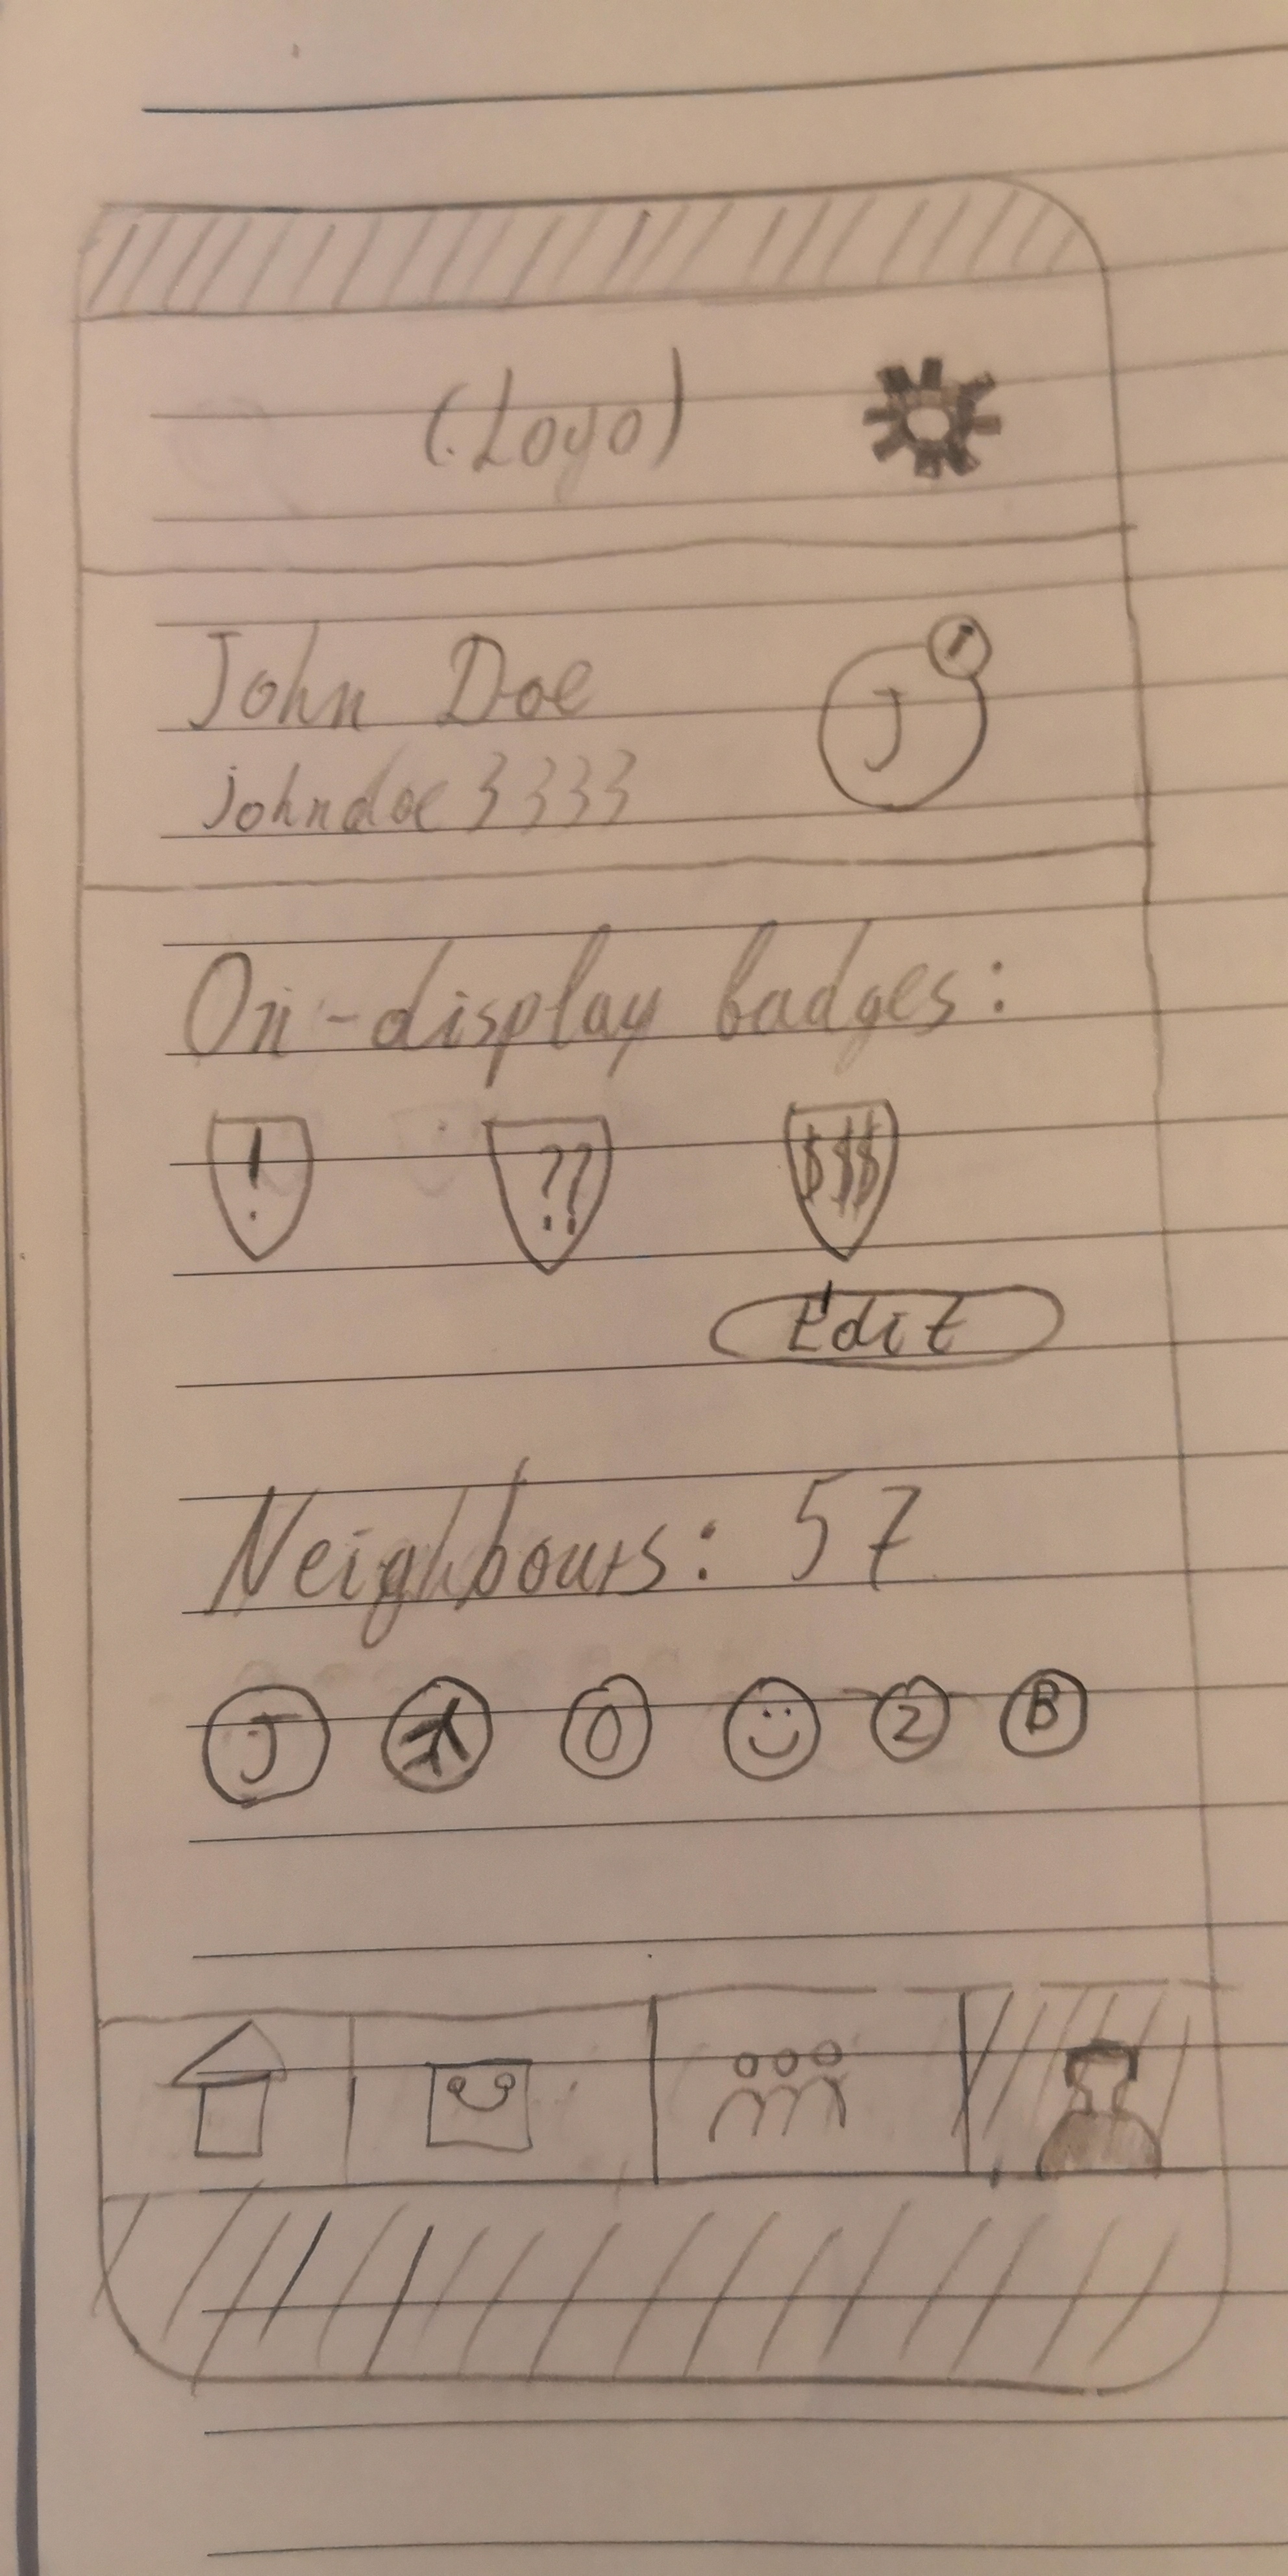 (Logo)
John Doe
J
johndoe3333
On-display badges:
! ?? $$$
Edit
Neighbours: 57
J O 2 B